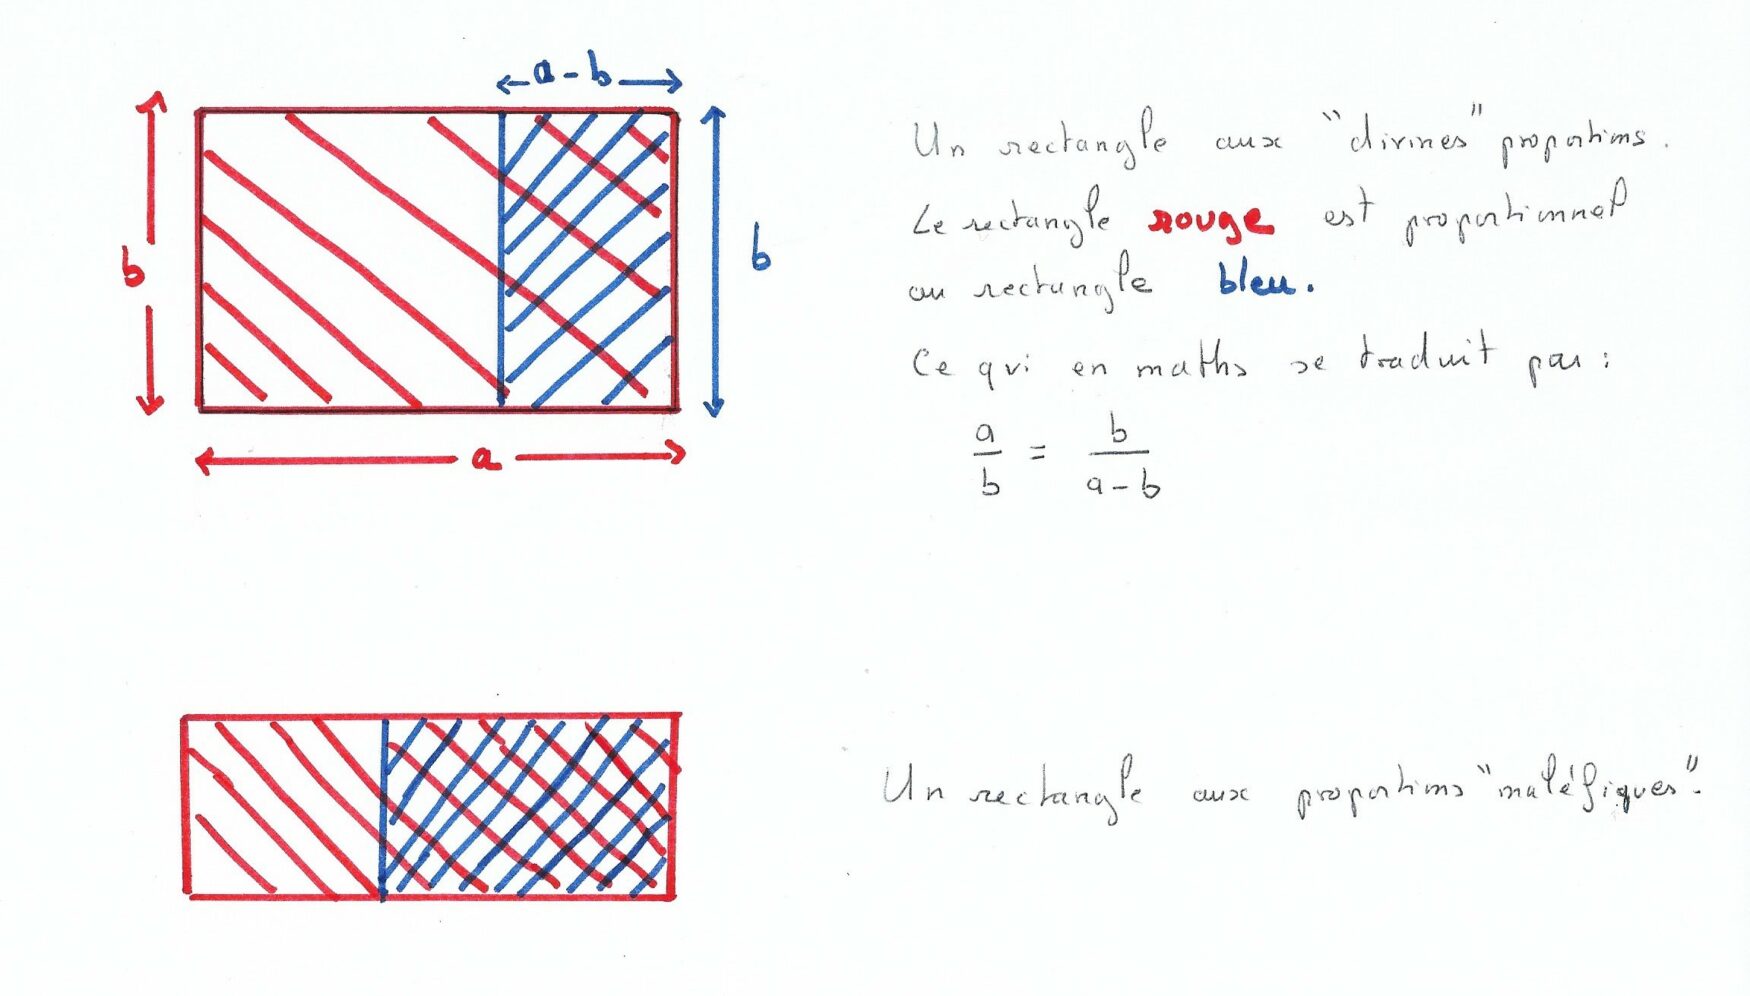 a-b
b
b
a
Un rectangle aux "divines" proportions.
Le rectangle rouge est proportionnel
au rectangle bleu.
Ce qui en maths se traduit par :
a/b = b/(a-b)
Un rectangle aux proportions "maléfiques".